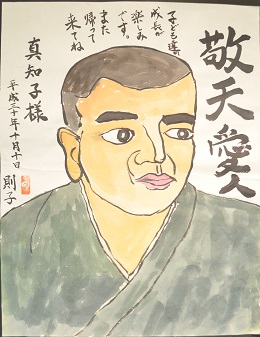 敬天愛人
子ども達の
成長が
楽しみ
です。
また
帰って
来てね
真知子様
平成三十年十月十日
則子